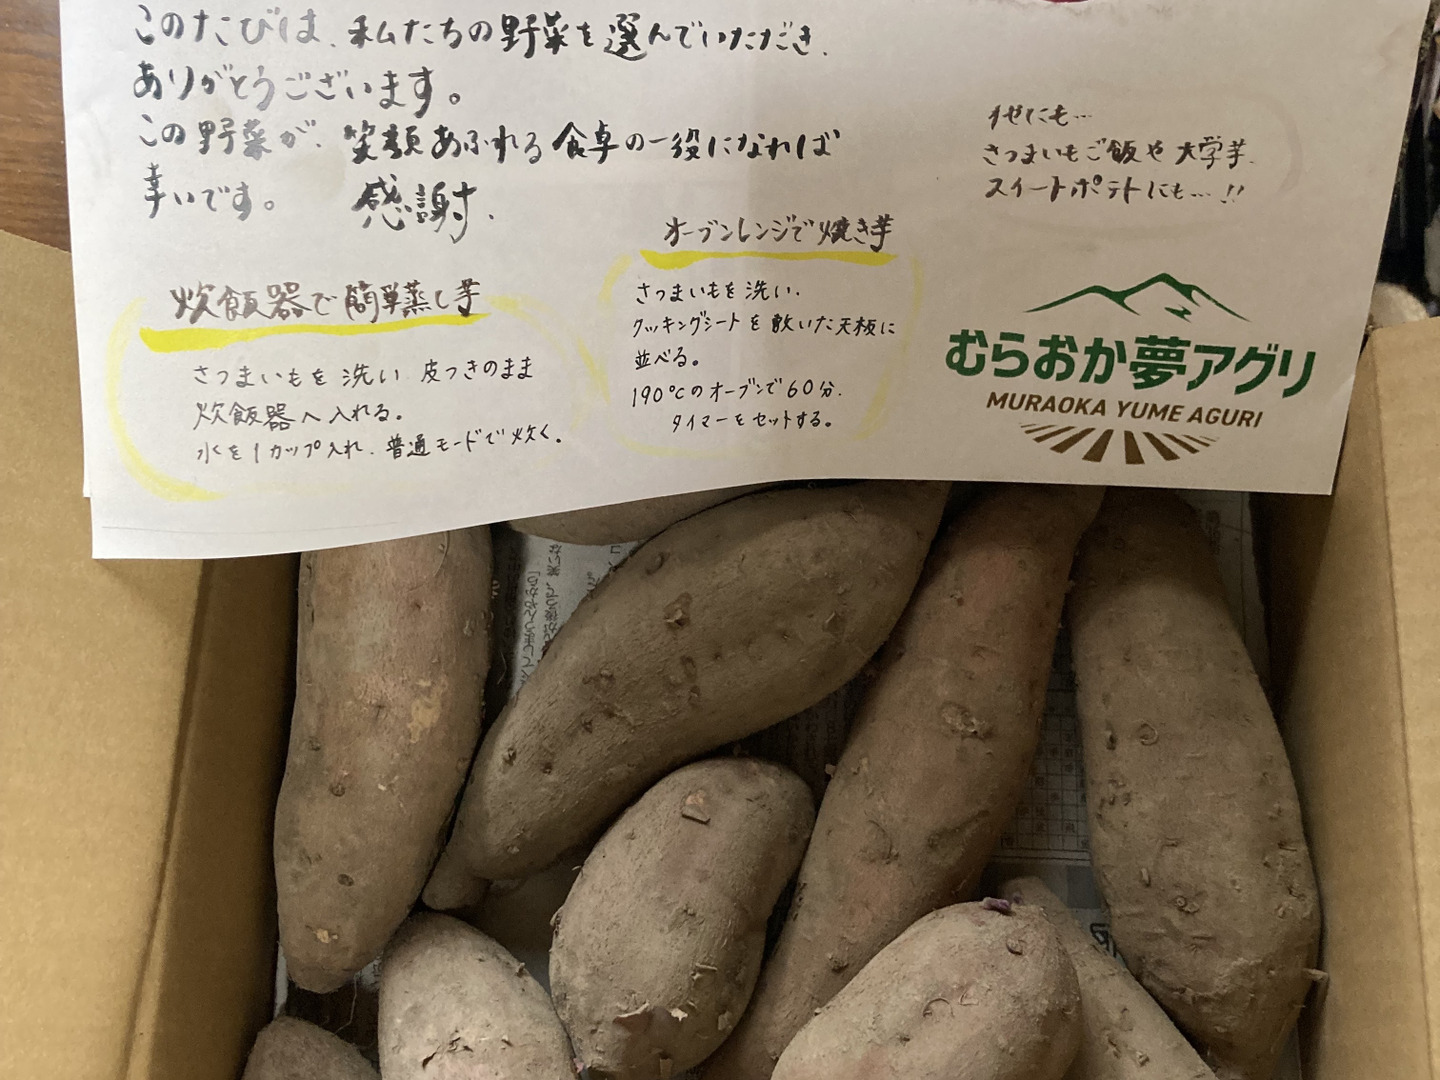 このたびは、私たちの野菜を選んでいただき、
ありがとうございます。
この野菜が、笑顔あふれる食卓の一役になれば
幸いです。 感謝.
炊飯器で簡単蒸し芋
さつまいもを洗い 皮つきのまま
炊飯器へ入れる。
水を1カップ入れ、普通モードで炊く。
オーブンレンジで焼き芋
さつまいもを洗い、
クッキングシートを敷いた天板に
並べる。
190℃のオーブンで60分、
タイマーをセットする。
他にも…
さつまいもご飯や大学芋、
スイートポテトにも…!!
むらおか夢アグリ
MURAOKA YUME AGURI